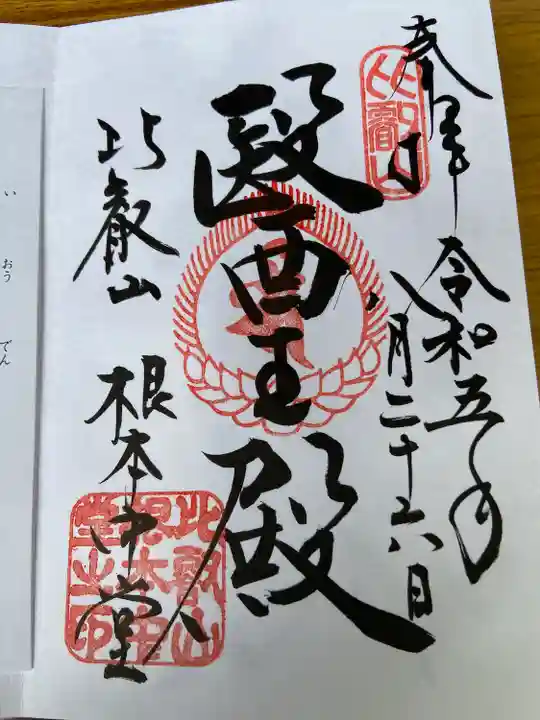 奉拝
令和五年
八月二十六日
比叡山
醫王殿
比叡山
根本中堂
比叡山
根本中
堂之印
いおうでん